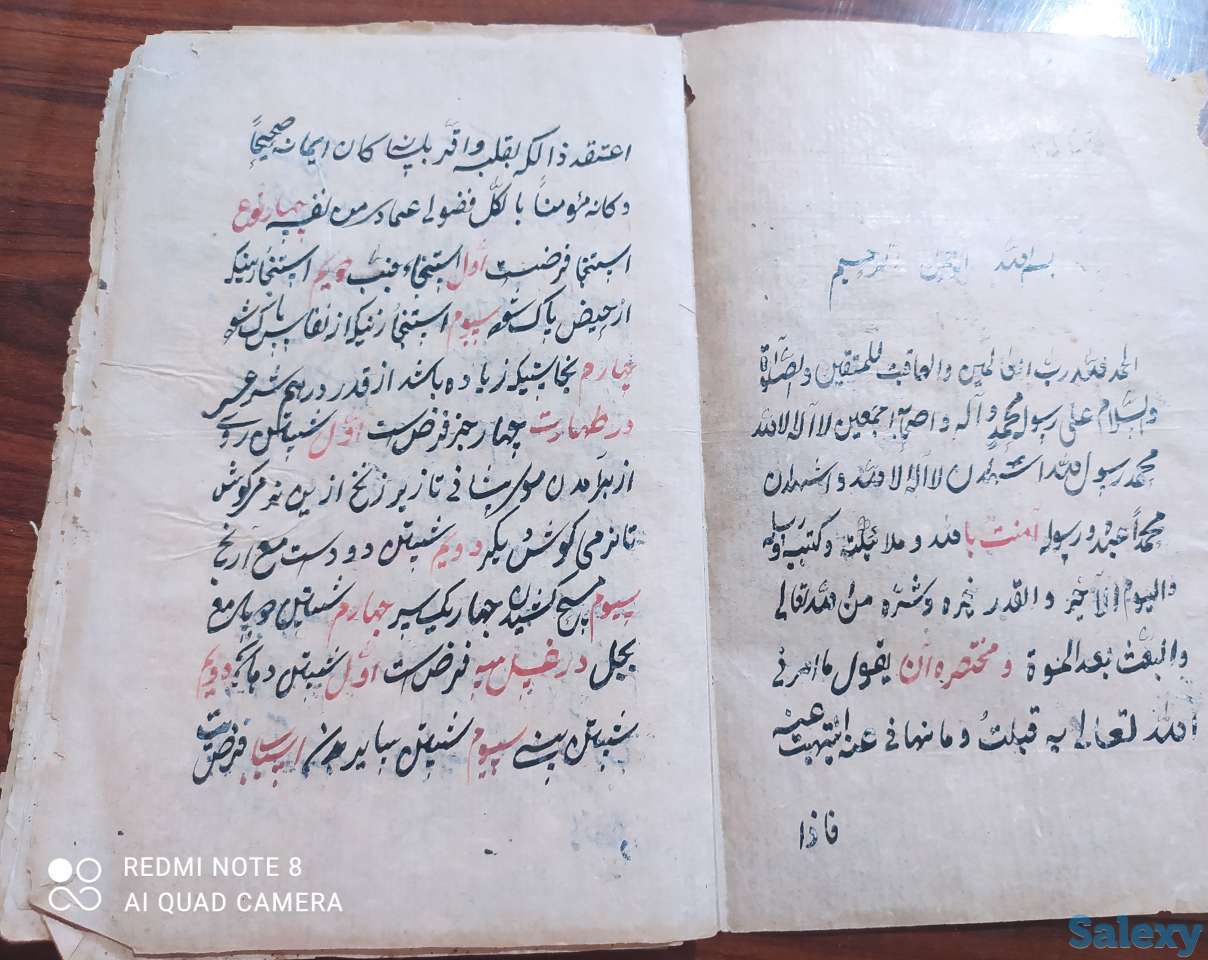 بسم الله الرحمن الرحيم
الحمد لله رب العالمين والعاقبت للمتقين والصلواة
والسلام على رسوله محمد وآله واصحابه اجمعين لا اله الا الله
محمد رسول الله اشهد ان لا اله الا الله و اشهد ان
محمداً عبده و رسوله آمنت بالله و ملائكته و كتبه و رسله
واليوم الآخر والقدر خيره و شره من الله تعالى
والبعث بعد الموة و مختصره آن يقول ما امرنى
الله تعالى به قبلتُ و ما نهانى عنه انتهيت عنه
فاذا
اعتقد ذالك بقلبه واقر بلسانه كان ايمانه صحيحاً
وكانه مؤمناً بالكل فضولى عمادى من نفسه چهار نوع
استنجا فرضست اول استنجاء جنب دويم استنجاء زنيكه
از حيض پاك شود سيوم استنجاء زنيكه از نفاس پاك شود
چهارم نجاستيكه زياده باشد از قدر درهم شرعى
در طهارت چهار چيز فرض است اول شستن روى
از برآمدن موى پيشانى تا زير زنخ از ين نرمه كوش
تا نرمى كوش ديكر دويم شستن دو دست مع آرنج
سيوم مسح كشيدن چهار يك سر چهارم شستن دو پاى مع
بجل در غسل سه فرض است اول شستن دهان دويم
شستن بينى سيوم شستن ساير بدن فرض است
REDMI NOTE 8
AI QUAD CAMERA
Salexy